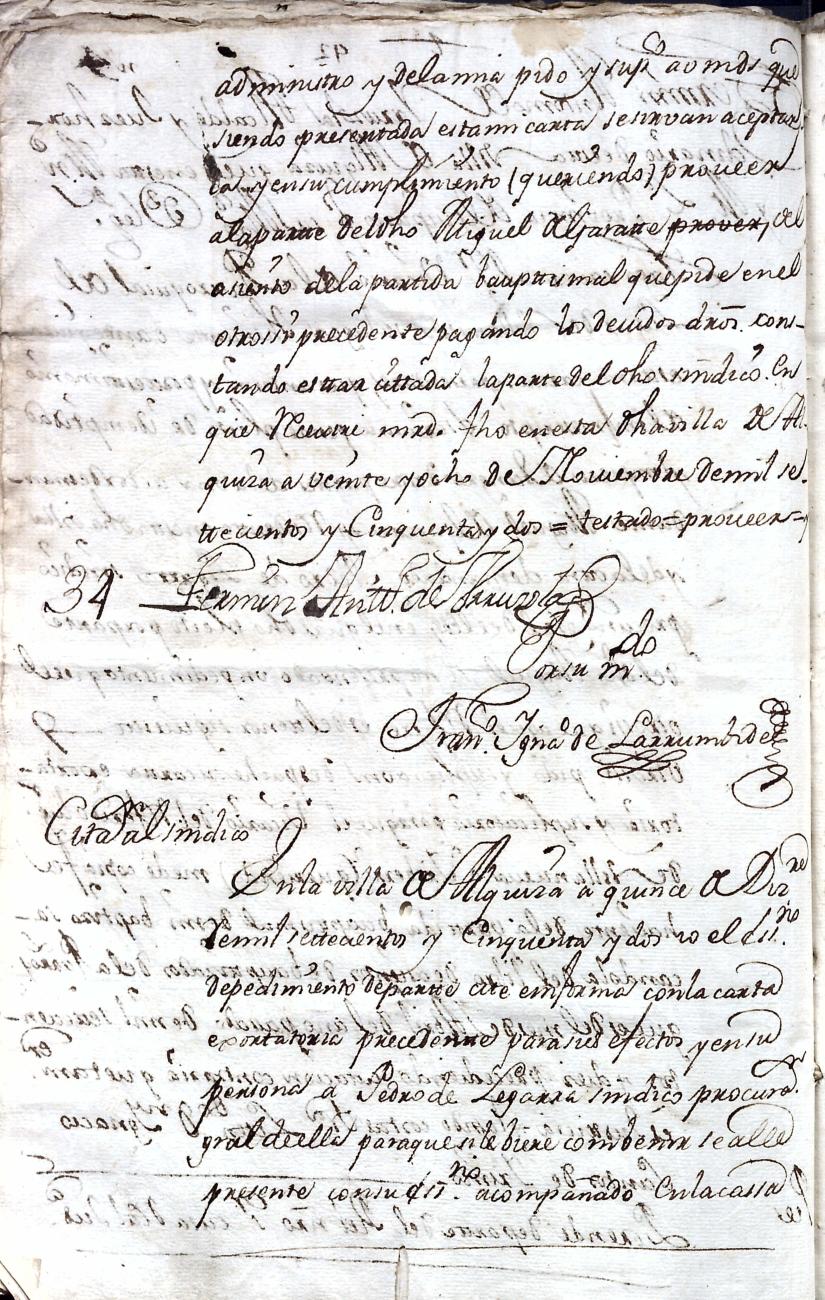 administro y delamia pido y supco aomds que
siendo presentada estami carta sesirvan aceptar
la y ensu cumplimiento (queriendo) proveer
alaparte deldho Miguel Aljaratte prover, el
asiento dela partida bauptismal quepide enel
otrossi precedente pagando los devidos dros. con-
tando esttar cittada laparte del dho sindico. En
que mrd. fho enesta dha villa De Al
quiza a veinte yocho De Noviembre demil se
ttecientos y Cinquenta y dos = testado = proveer =
34 Fermin Antto. de
Porsu mdo.
Franco. Ignao. de Larrumbide
Citaon al sindico
Enla villa de Alquiza a quince de Dizre
demil settecientos y Cinquenta y dos yo el ssno.
depedimiento departte cite enforma conla carta
exortatoria precedente parasus efectos y ensu
persona a Pedro de Legarra sindico procuror.
gral deella paraque sile biere combenir sealle
presente consu essno. acompañado Enlacassa
de